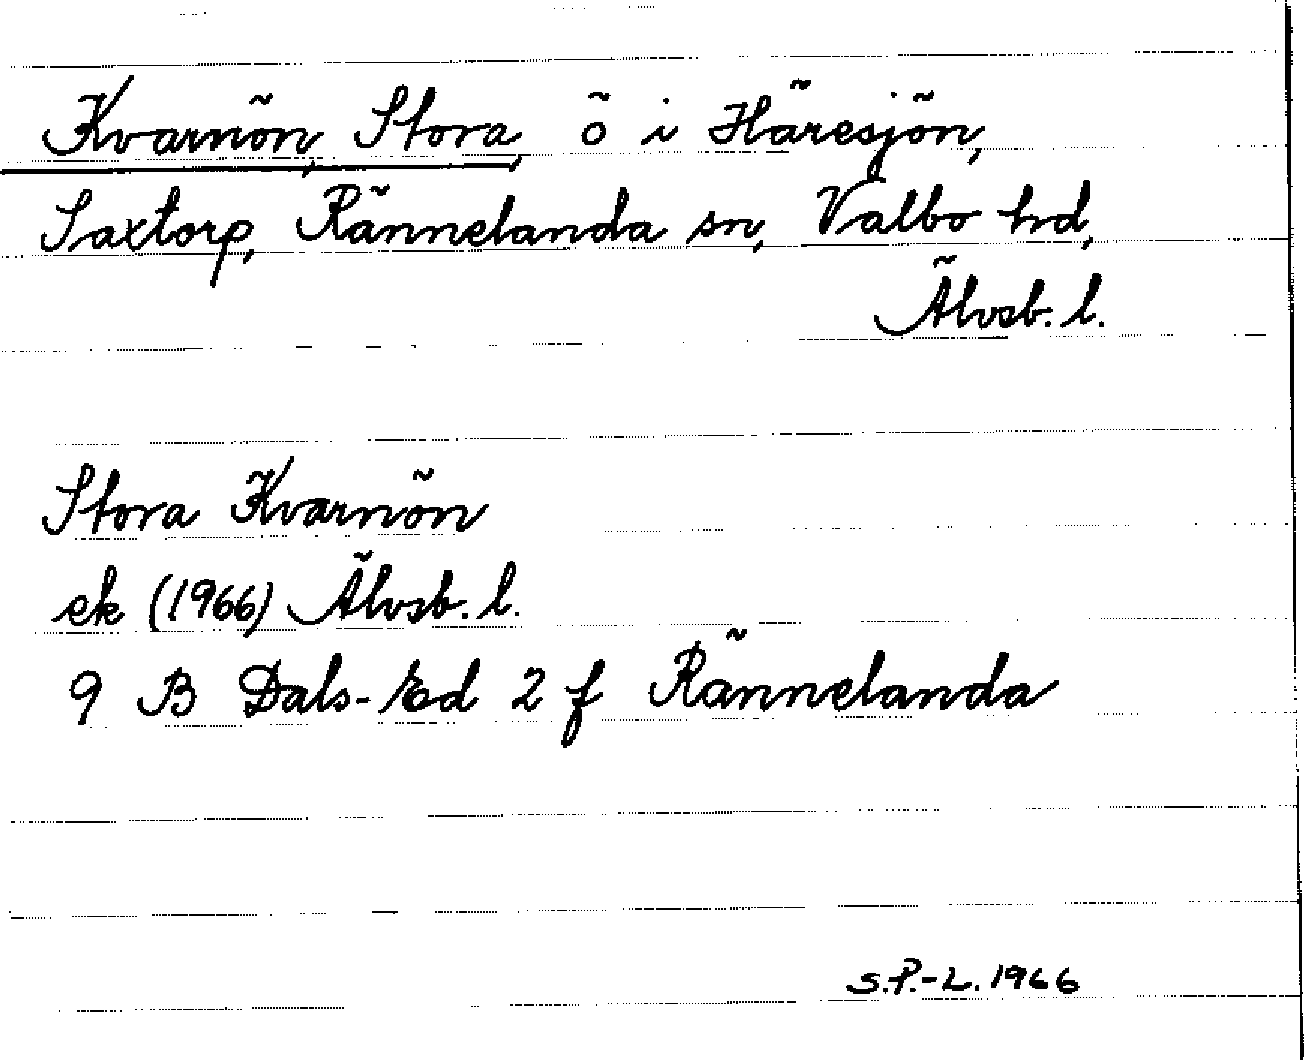 Kvarnön, Stora, ö i Häresjön,
Saxtorp, Rännelanda sn, Valbo hd,
Älvsb. l.
Stora Kvarnön
ek (1966) Älvsb. l.
9 B Dals-Ed 2 f Rännelanda
S.P.-L. 1966